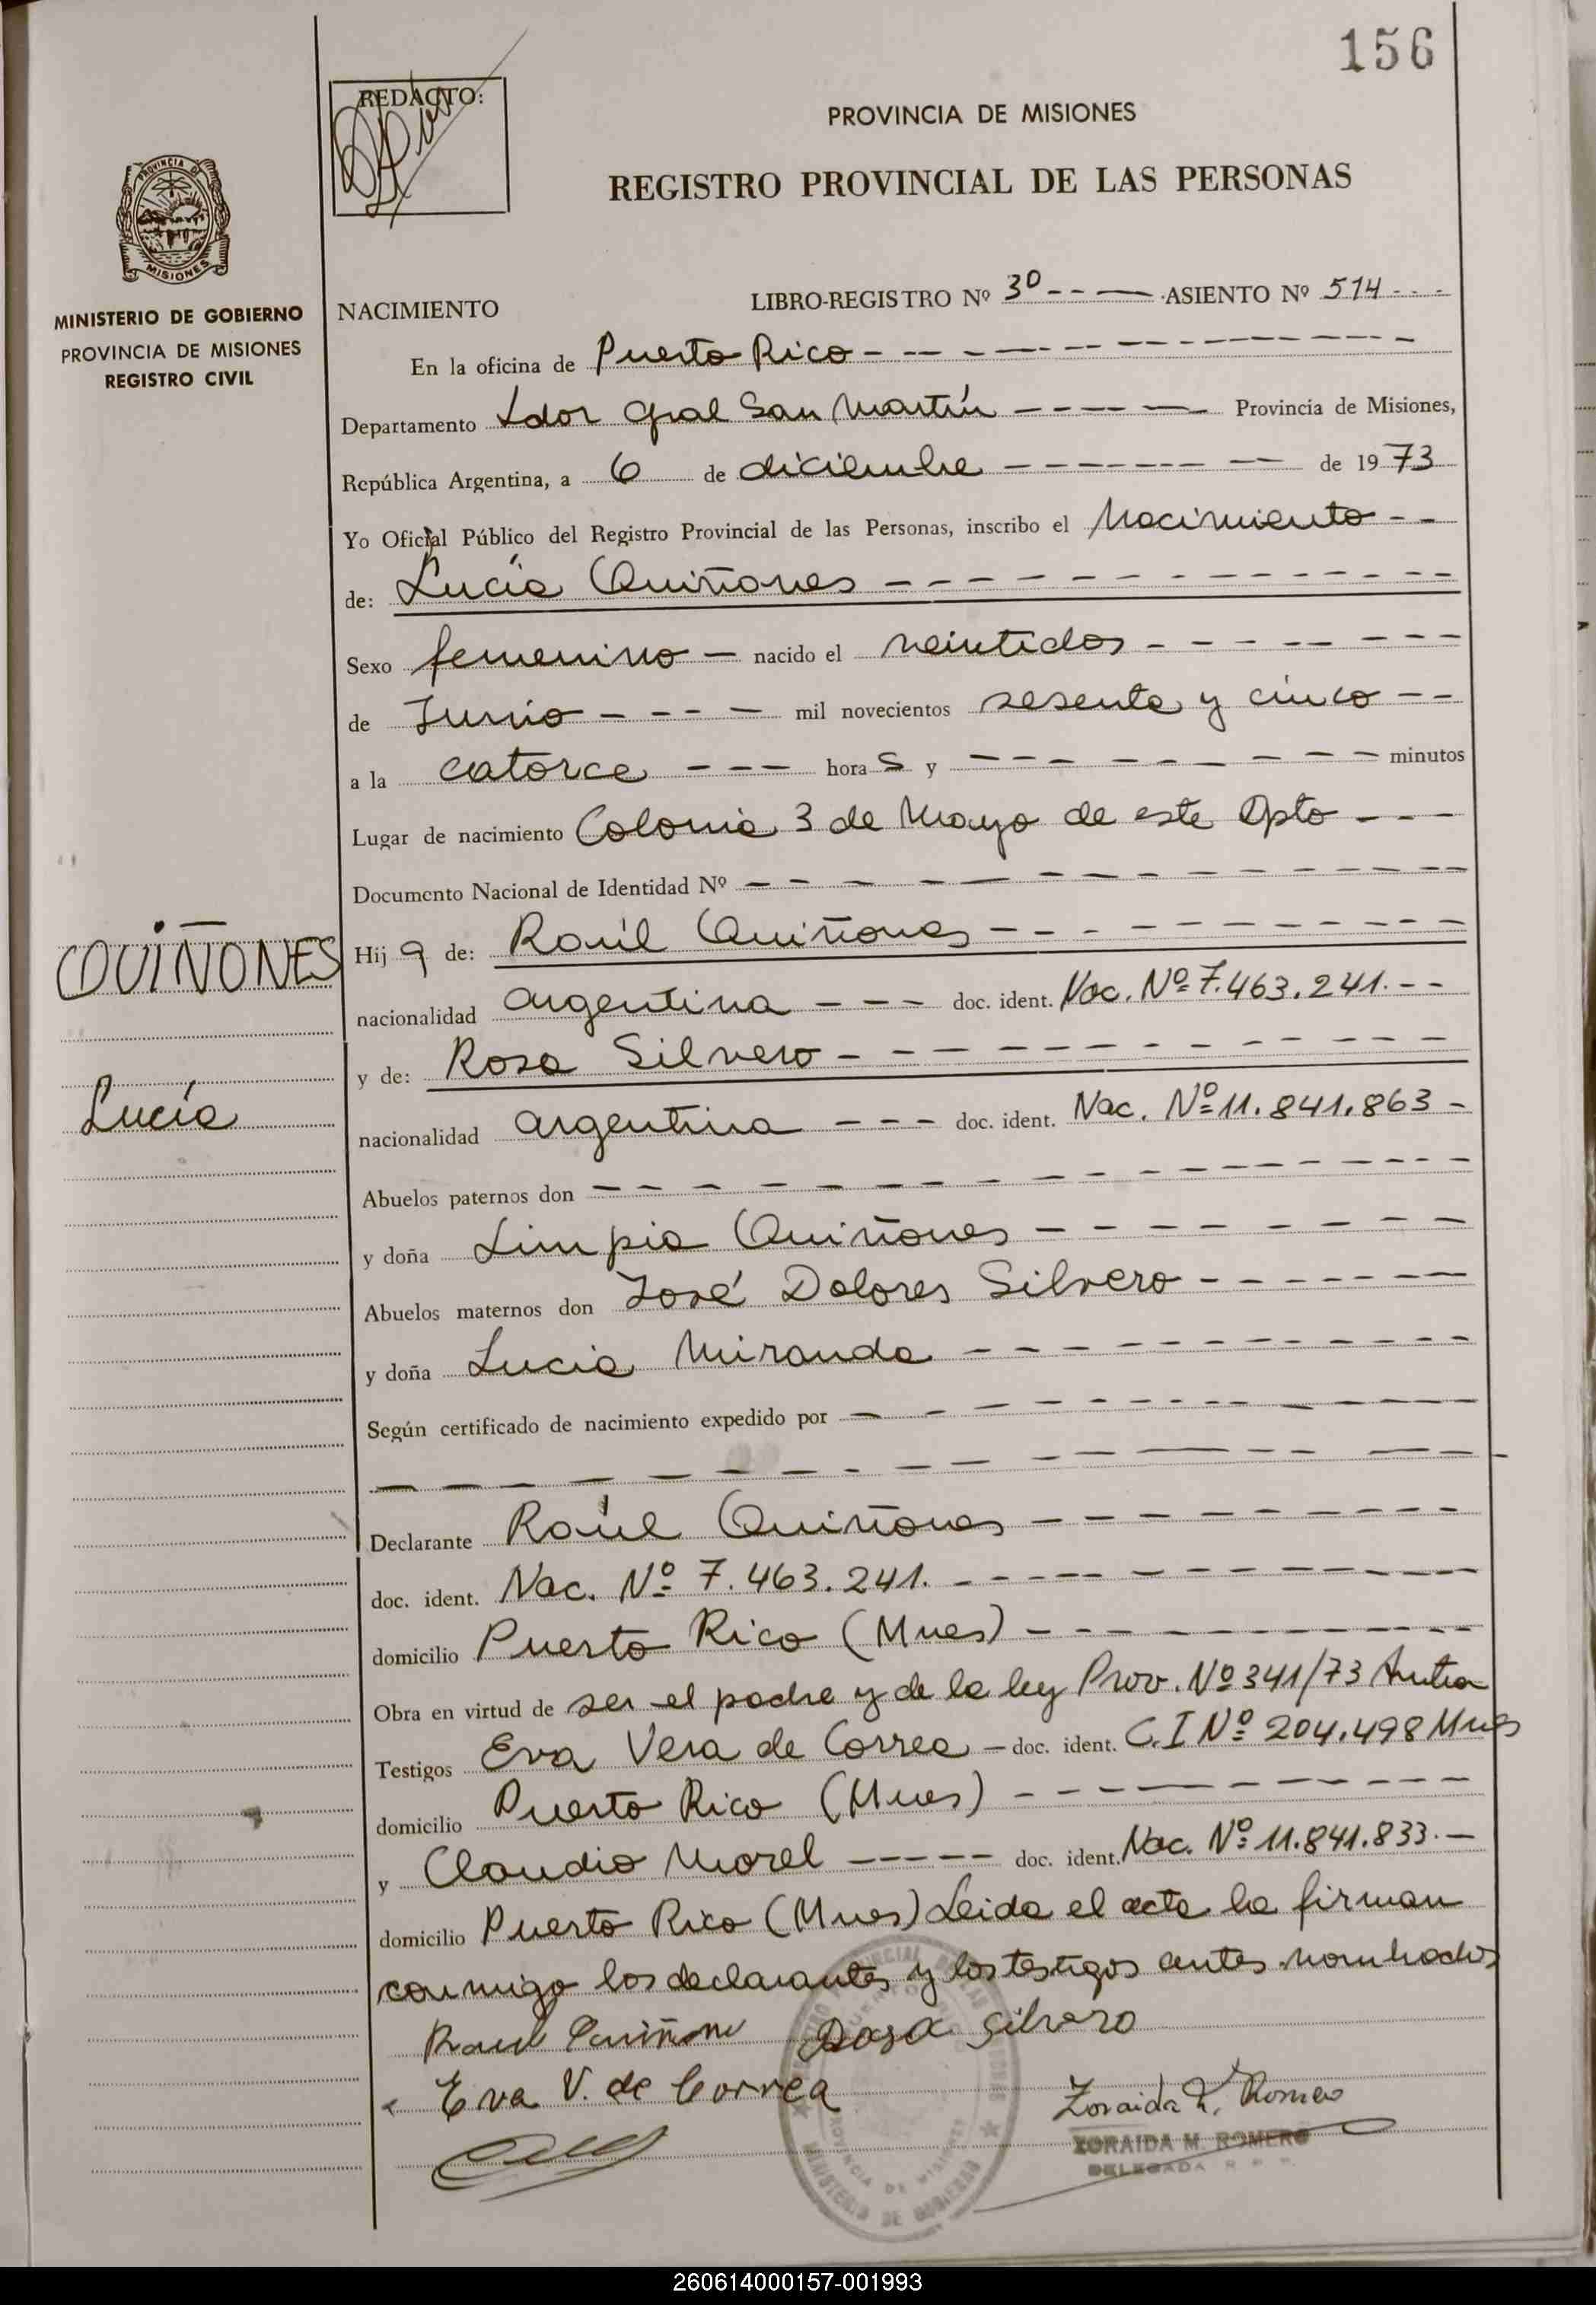 156
REDACTO:
PROVINCIA DE MISIONES
REGISTRO PROVINCIAL DE LAS PERSONAS
PROVINCIA DE
MISIONES
MINISTERIO DE GOBIERNO
PROVINCIA DE MISIONES
REGISTRO CIVIL
NACIMIENTO LIBRO-REGISTRO Nº 30 - - — ASIENTO Nº 514 - - -
En la oficina de Puerto Rico - - - - - - -
Departamento Ldor Gral San Martín - - - - Provincia de Misiones,
República Argentina, a 6 de diciembre - - - - - de 1973
Yo Oficial Público del Registro Provincial de las Personas, inscribo el Nacimiento - -
de: Lucía Quiñones - - - - - - -
Sexo femenino - nacido el veintidos - - - - - -
de Junio - - - - mil novecientos sesenta y cinco - -
a la catorce - - - hora s y - - - - - - - minutos
Lugar de nacimiento Colonia 3 de Mayo de este Dpto - - -
Documento Nacional de Identidad Nº - - - - - - -
QUIÑONES
Hij a de: Raúl Quiñones - - - - - - -
nacionalidad argentina - - - doc. ident. Nac. Nº 7.463.241. - -
y de: Rosa Silvero - - - - - - -
Lucía
nacionalidad argentina - - - doc. ident. Nac. Nº 11.841.863 -
Abuelos paternos don - - - - - - -
y doña Limpia Quiñones - - - - - - -
Abuelos maternos don José Dolores Silvero - - - - - -
y doña Lucia Miranda - - - - - - -
Según certificado de nacimiento expedido por - - - - - - -
- - - - - - - - - -
Declarante Raúl Quiñones - - - - - - -
doc. ident. Nac. Nº 7.463.241. - - - - - - -
domicilio Puerto Rico (Mnes) - - - - - - -
Obra en virtud de ser el padre y de la ley Prov. Nº 341/73
Testigos Eva Vera de Correa - doc. ident. C.I Nº 204.498 Mnes
domicilio Puerto Rico (Mnes) - - - - - - -
y Claudio Morel - - - - - doc. ident. Nac. Nº 11.841.833. -
domicilio Puerto Rico (Mnes) Leida el acta la firman
conmigo los declarantes y los testigos antes nombrados
Raul Quiñone Rosa Silvero
Eva V. de Correa
Zoraida M. Romero
ZORAIDA M. ROMERO
DELEGADA R. P. P.
PROVINCIA DE MISIONES
MINISTERIO DE GOBIERNO
260614000157-001993